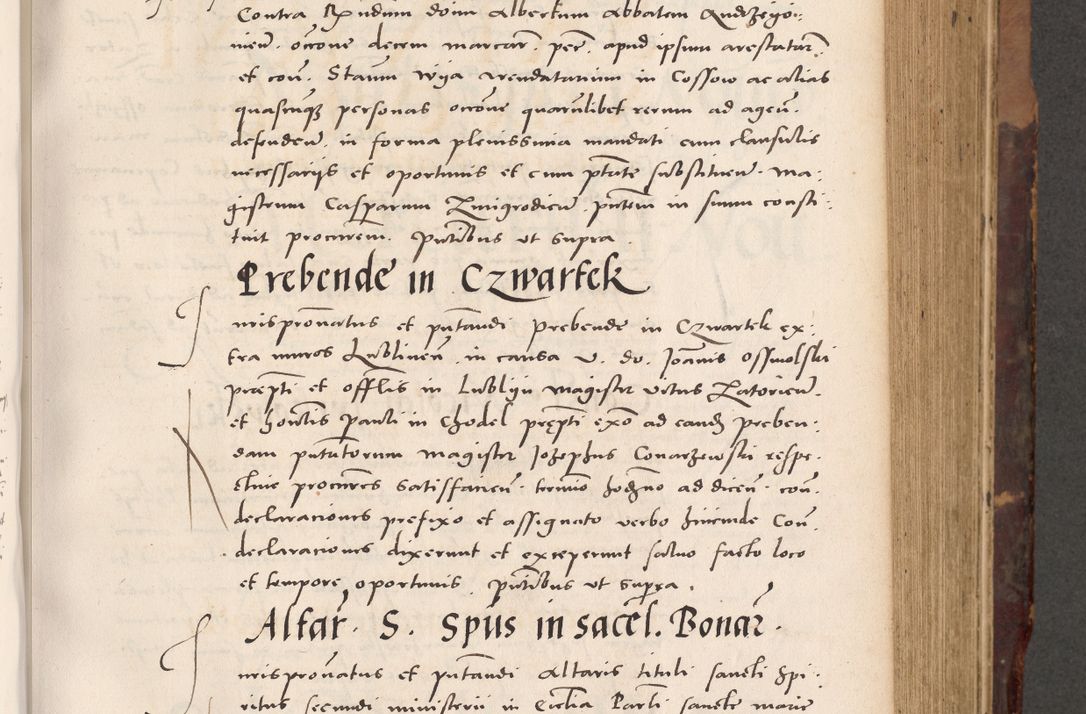 Contra Rndum donm Albertum Abbatem Andrzeyoi:
nien. occone decem marcar. pec. apud ipsum arestatar.
et con. Staum Wya arendatarium in Cossow ac alias
quascunq personas occone quarumlibet rerum ad agen.
defenden. in forma plenissima mandati cum clausulis
necessarijs et oportunis et cum ptate substituen. Ma:
gistrum Casparum Zmigrodicen. pntem in suum consti:
tuit procurem. pntibus ut supra.
Prebende in Czwartek
Jurispronatus et pntandi Prebende in Czwartek ex:
tra muros Lublinen. in causa v. do. Joannis Ossmolski
praepti et offlis in Lublyn magister Vitus Zatoricen.
et honstis Pauli in Chodel prepti exo ad eand preben:
dam pntatorum magister Jozephus Conarzewski respe:
ctive procures satisfacien. termio hodzno ad dicen. con.
declaraciones prefixo et assignato verbo hincinde Con.
declaraciones dixerunt et exceperunt salvo facto loco
et tempore oportunis. pntibus ut supra.
Altar. S. Spus in sacel. Bonar.
Jurispronatus et pntandi Altaris tituli sancti Spi:
ritus secundi ministerii in Ecclia Parli sancte marie